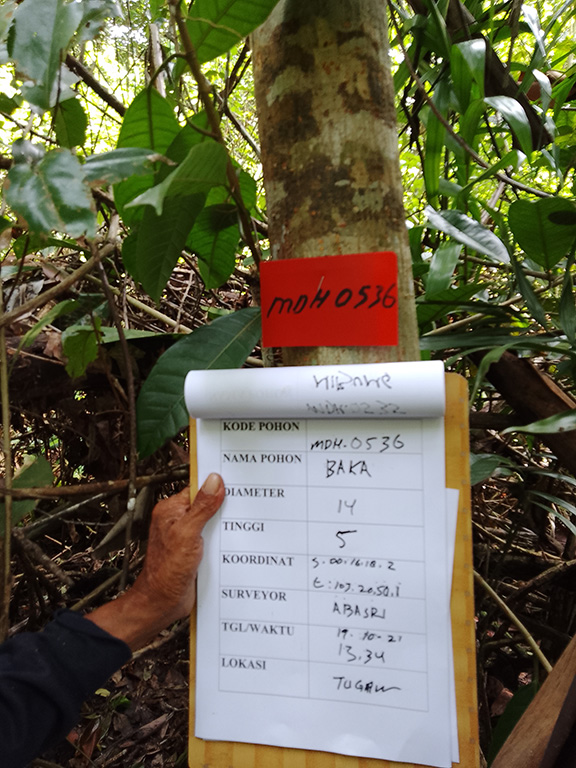 MDH 0536
KODE POHON MDH.0536
NAMA POHON BAKA
DIAMETER 14
TINGGI 5
KOORDINAT S.00.16.18.2
E:103.20.50.1
SURVEYOR ABASRI
TGL/WAKTU 19-10-21
13.34
LOKASI